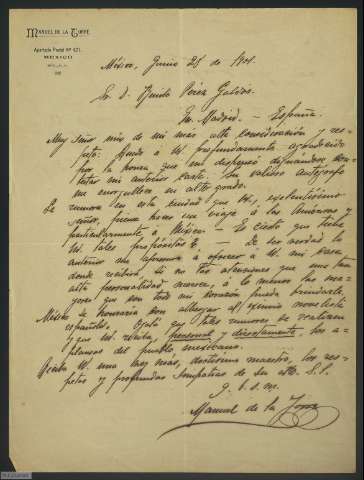 MANUEL DE LA TORRE
Apartado Postal Nº 621.
MEXICO
México, Junio 25 de 1901.
Sr. D. Benito Pérez Galdós.
En Madrid. — España.
Muy Señor mío de mi más alta consideración y res-
peto: Quedo á U. profundamente agradecido
por la honra que me dispensó dignándose con-
testar mi anterior carta. Su valioso autógrafo
me enorgullece en alto grado.
Se rumora en esta ciudad que U., excelentísimo
señor, piensa hacer un viaje á las Américas y
particularmente á México. — Es cierto que tiene
U. tales propósitos? — De ser verdad lo
anterior me apresuro á ofrecer á U. mi casa
donde recibirá, si no las atenciones que una tan
alta personalidad merece, á lo menos las ma-
yores que con todo mi corazón pueda brindarle.
México se honraría con albergar al eximio novelista
español. Ojalá que tales rumores se realicen
y que U. reciba, personal y directamente, los a-
plausos del pueblo mexicano.
Reciba U. una vez más, doctísimo maestro, los res-
petos y profundas simpatías de su atto. S. S.
q. b. s. m.
Manuel de la Torre